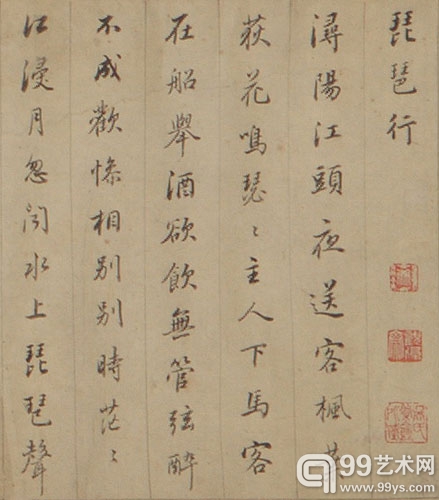 琵琶行
潯陽江頭夜送客楓葉
荻花鳴瑟〻主人下馬客
在船舉酒欲飲無管弦醉
不成歡慘相别别時茫〻
江浸月忽聞水上琵琶聲
99艺术网
www.99ys.com